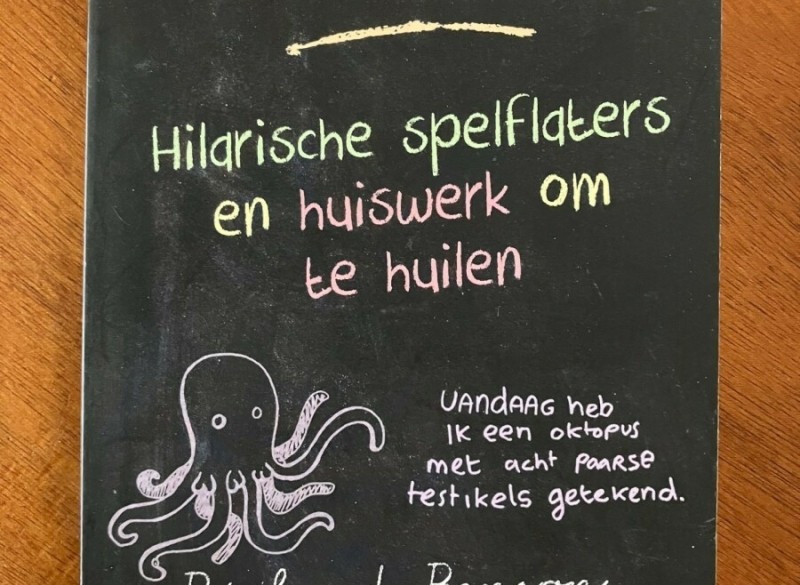 Hilarische spelflaters
en huiswerk om
te huilen
VANDAAG heb
IK een oktopus
met acht PAARSE
testikels getekend.